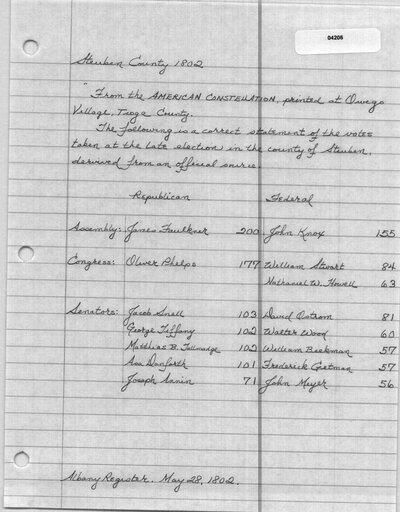 04206
Steuben County 1802
"From the AMERICAN CONSTELLATION, printed at Owego
Village, Tioga County.
The following is a correct statement of the votes
taken at the late election in the county of Steuben,
derived from an official source.
Republican Federal
Assembly: James Faulkner 200 John Knox 155
Congress: Oliver Phelps 177 William Stuart 84
Nathaniel W. Howell 63
Senators: Jacob Snell 103 David Ostrom 81
George Tiffany 102 Walter Wood 60
Matthias B. Tallmadge 102 William Beekman 57
Asa Danforth 101 Frederick Getman 57
Joseph Annin 71 John Meyer 56
Albany Register. May 28, 1802.